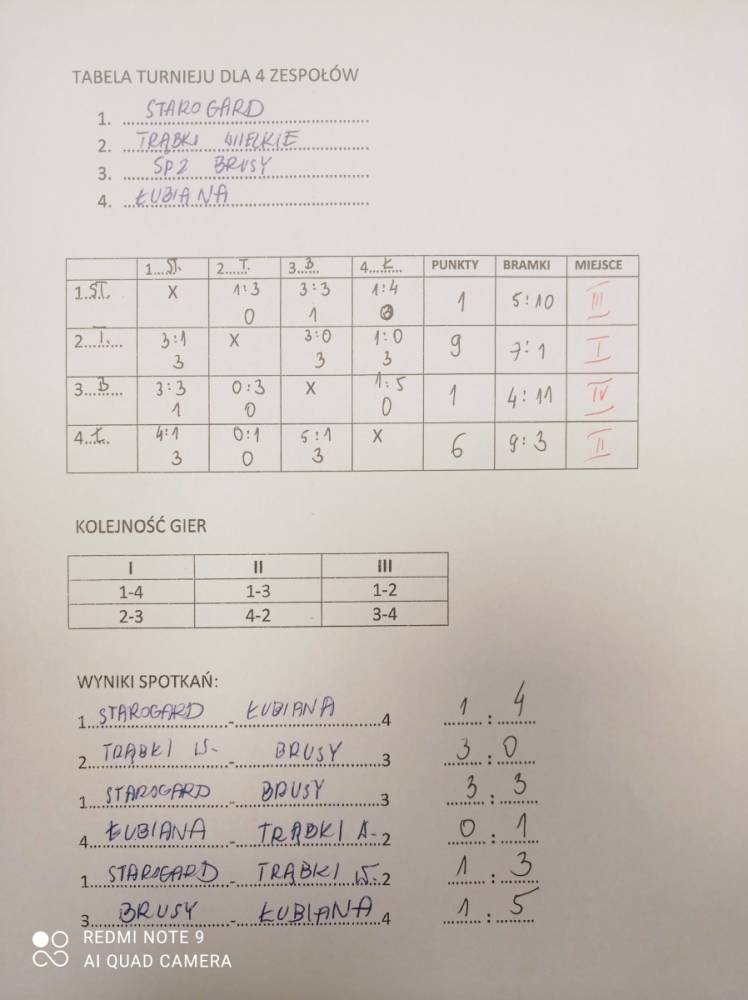 TABELA TURNIEJU DLA 4 ZESPOŁÓW
1. STAROGARD
2. TRĄBKI WIELKIE
3. SP2 BRUSY
4. ŁUBIANA
1...ST. 2...T. 3...B 4...Ł PUNKTY BRAMKI MIEJSCE
1..ST. X 1:3 3:3 1:4 1 5:10 III
0 1 0
2...T. 3:1 X 3:0 1:0 9 7:1 I
3 3 3
3...B 3:3 0:3 X 1:5 1 4:11 IV
1 0 0
4..Ł 4:1 0:1 5:1 X 6 9:3 II
3 0 3
KOLEJNOŚĆ GIER
I II III
1-4 1-3 1-2
2-3 4-2 3-4
WYNIKI SPOTKAŃ:
1 STAROGARD - ŁUBIANA 4 1 : 4
2 TRĄBKI W. - BRUSY 3 3 : 0
1 STAROGARD - BRUSY 3 3 : 3
4 ŁUBIANA - TRĄBKI 2 0 : 1
1 STAROGARD - TRĄBKI W. 2 1 : 3
3 BRUSY - ŁUBIANA 4 1 : 5
REDMI NOTE 9
AI QUAD CAMERA